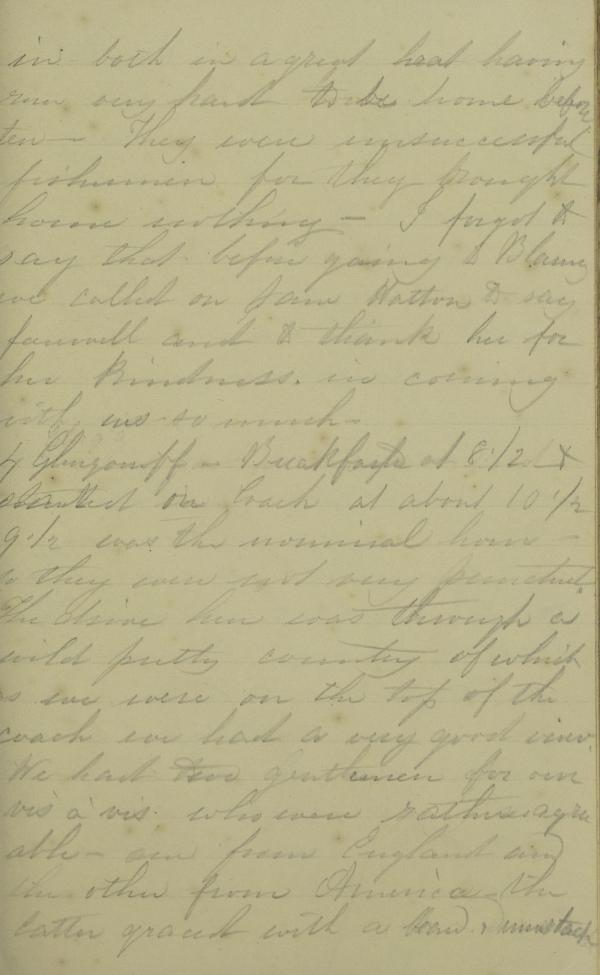 in both in a great heat having
run very hard to be home before
ten — They were unsuccessful
fishermen for they brought
home nothing — I forgot to
say that before going to Blarney
we called on Jane Hatton to say
farewell and to thank her for
her kindness in coming
with us so much —
Breakfast at 8 1/2 &
started on Coach at about 10 1/2
9 1/2 was the nominal hour —
so they were not very punctual
The drive here was through a
wild pretty country of which
as we were on the top of the
coach we had a very good view
We had two gentlemen for our
vis à vis who were rather agree
able — one from England and
the other from America the
latter graced with a beard & mustach